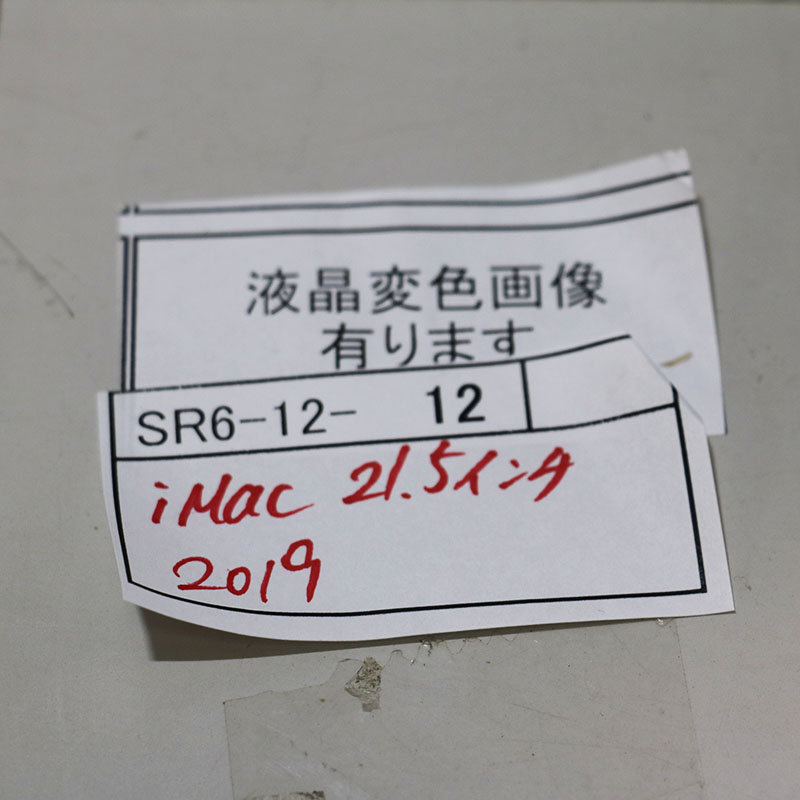 液晶変色画像
有ります
SR6-12- 12
iMac 21.5インチ
2019